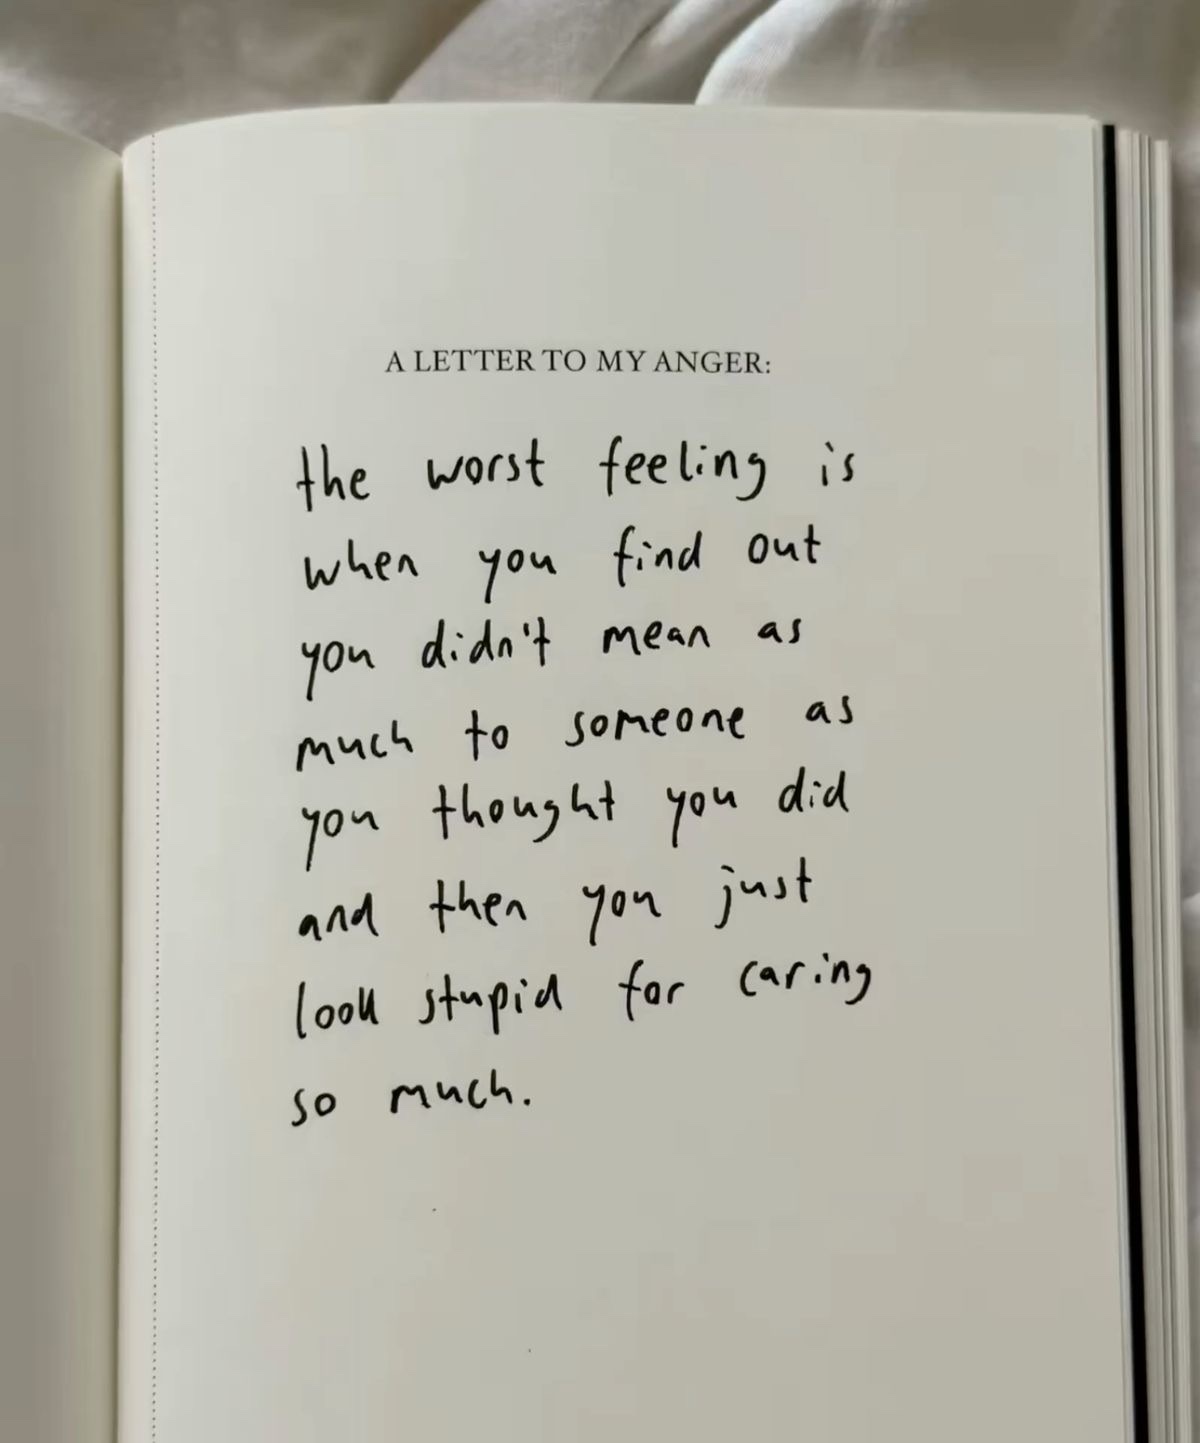 A LETTER TO MY ANGER:
the worst feeling is
when you find out
you didn't mean as
much to someone as
you thought you did
and then you just
look stupid for caring
so much.